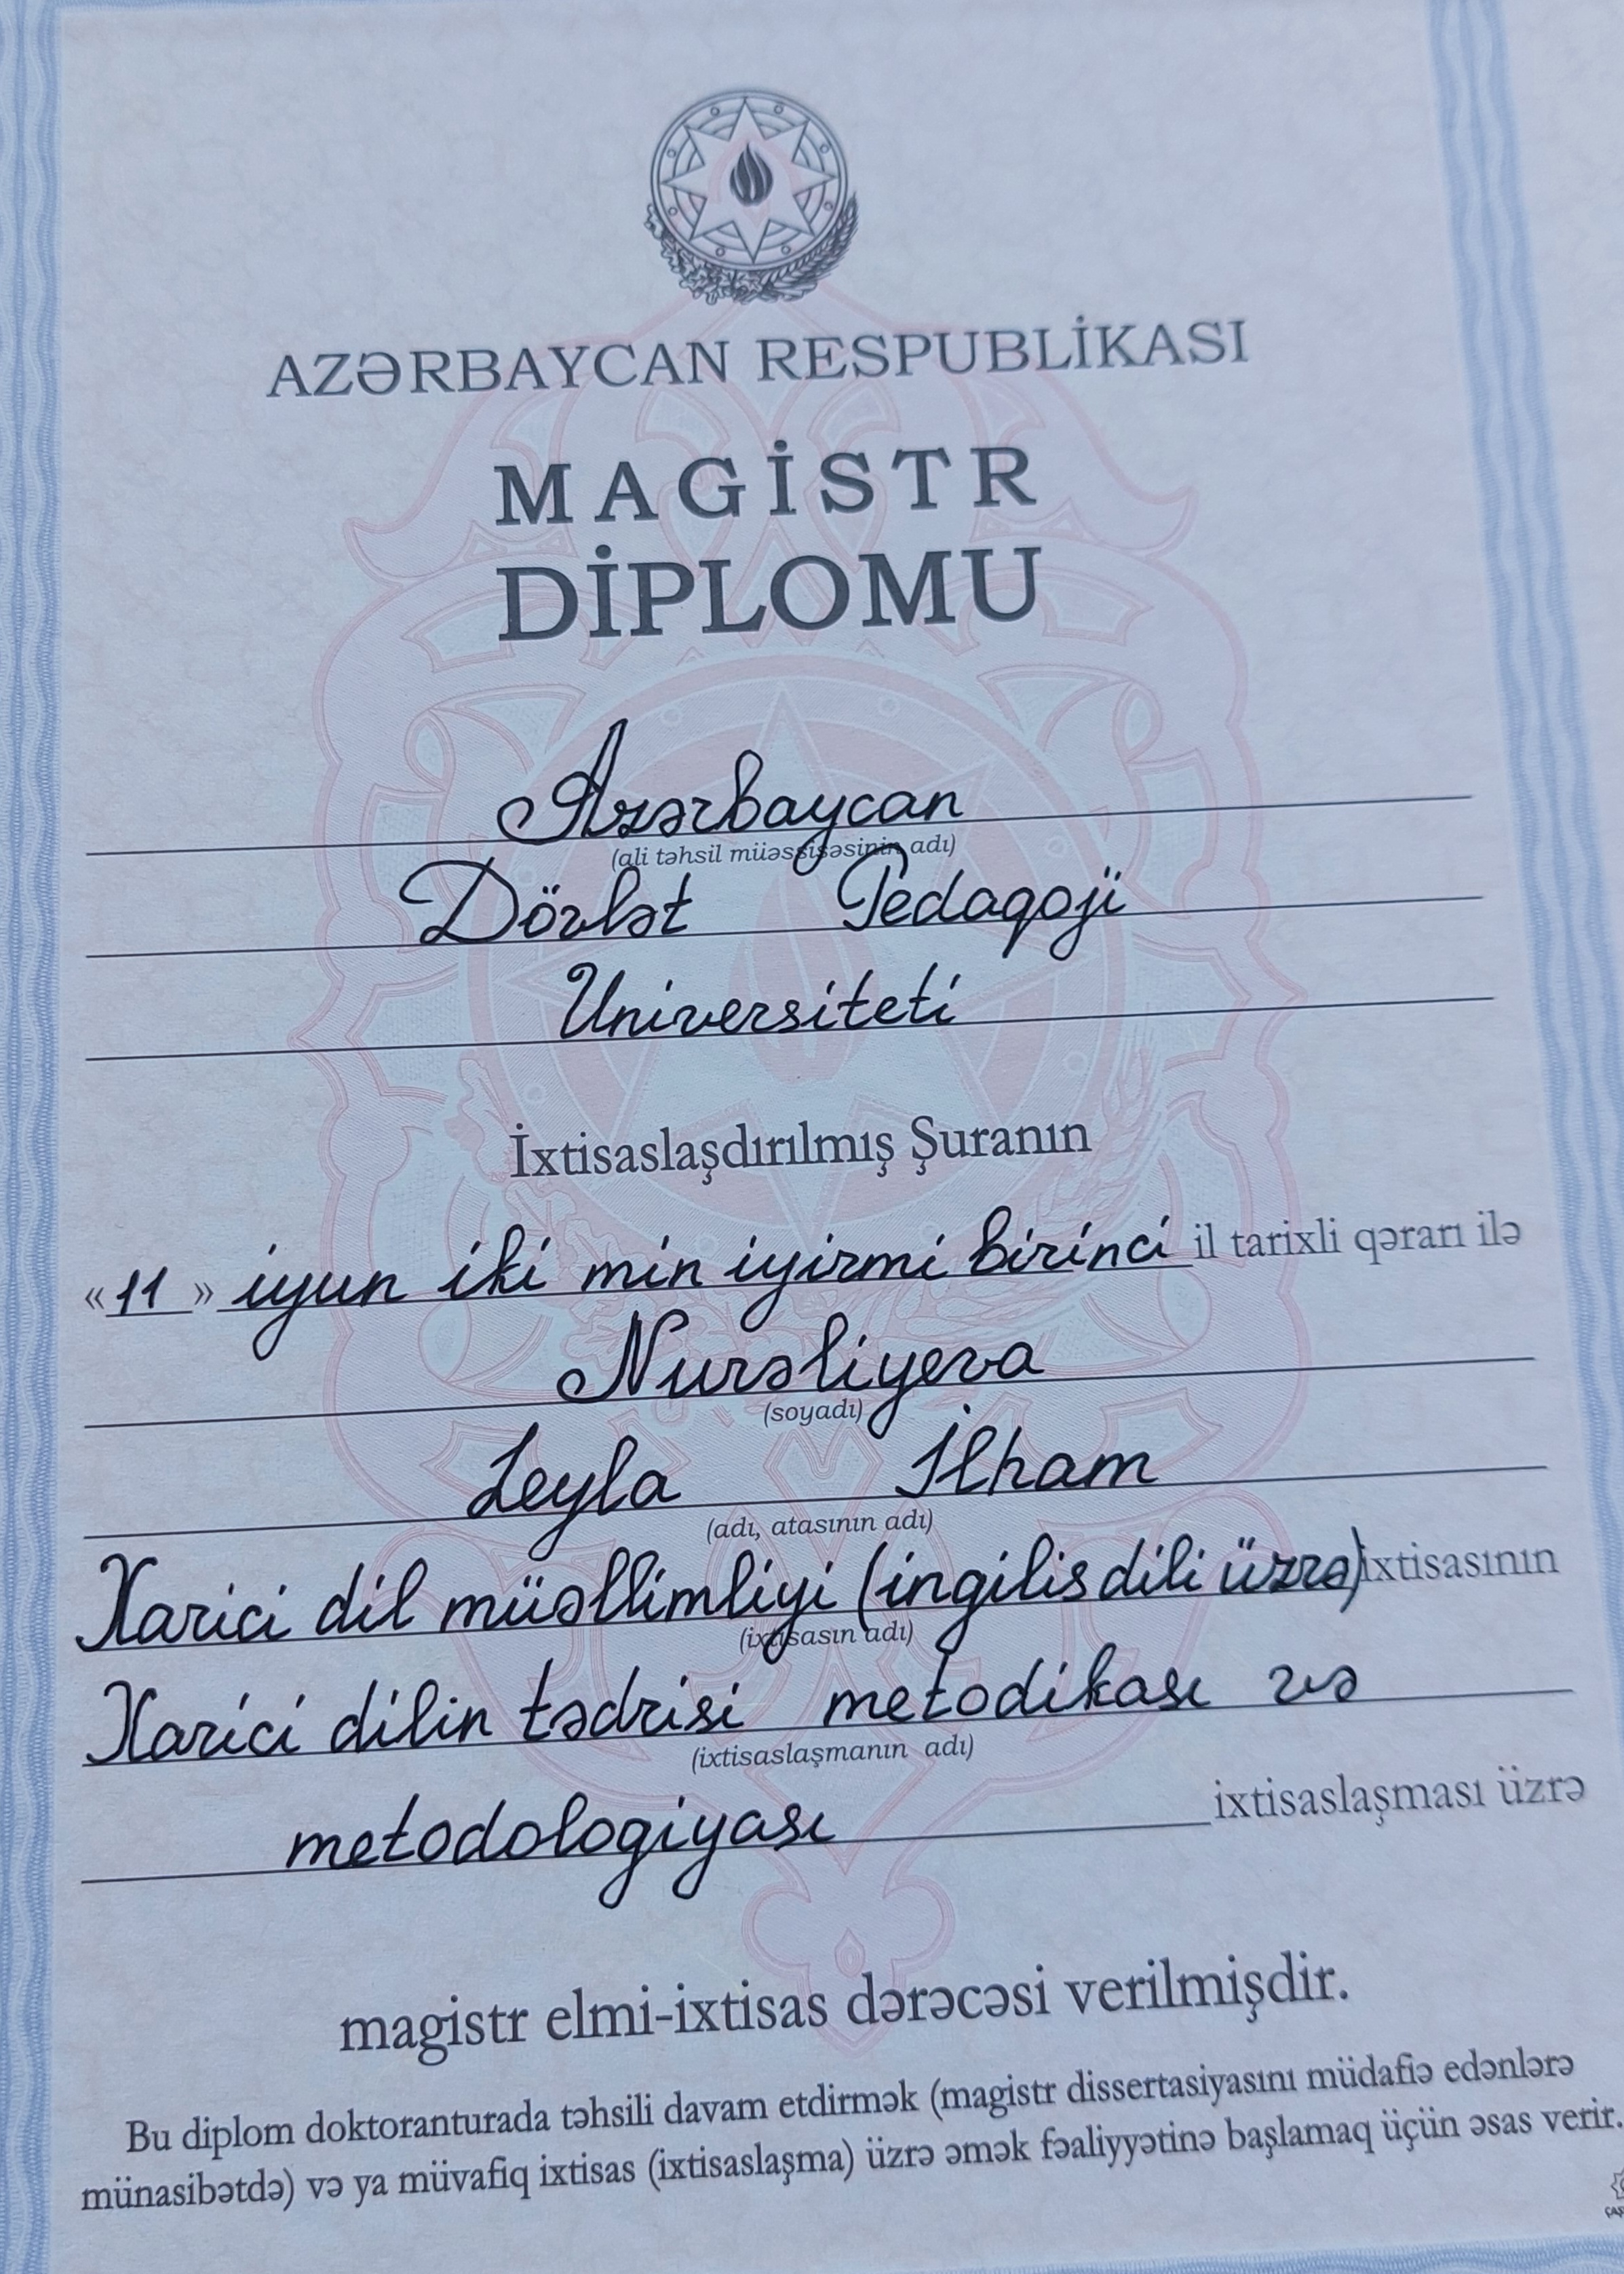 AZƏRBAYCAN RESPUBLİKASI
MAGİSTR
DİPLOMU
Azərbaycan
(ali təhsil müəssisəsinin adı)
Dövlət Pedaqoji
Universiteti
İxtisaslaşdırılmış Şuranın
«11» iyun iki min iyirmi birinci il tarixli qərarı ilə
Nurəliyeva
(soyadı)
Leyla İlham
(adı, atasının adı)
Xarici dil müəllimliyi (ingilis dili üzrə) ixtisasının
(ixtisasın adı)
Xarici dilin tədrisi metodikası və
(ixtisaslaşmanın adı)
metodologiyası ixtisaslaşması üzrə
magistr elmi-ixtisas dərəcəsi verilmişdir.
Bu diplom doktoranturada təhsili davam etdirmək (magistr dissertasiyasını müdafiə edənlərə
münasibətdə) və ya müvafiq ixtisas (ixtisaslaşma) üzrə əmək fəaliyyətinə başlamaq üçün əsas verir.